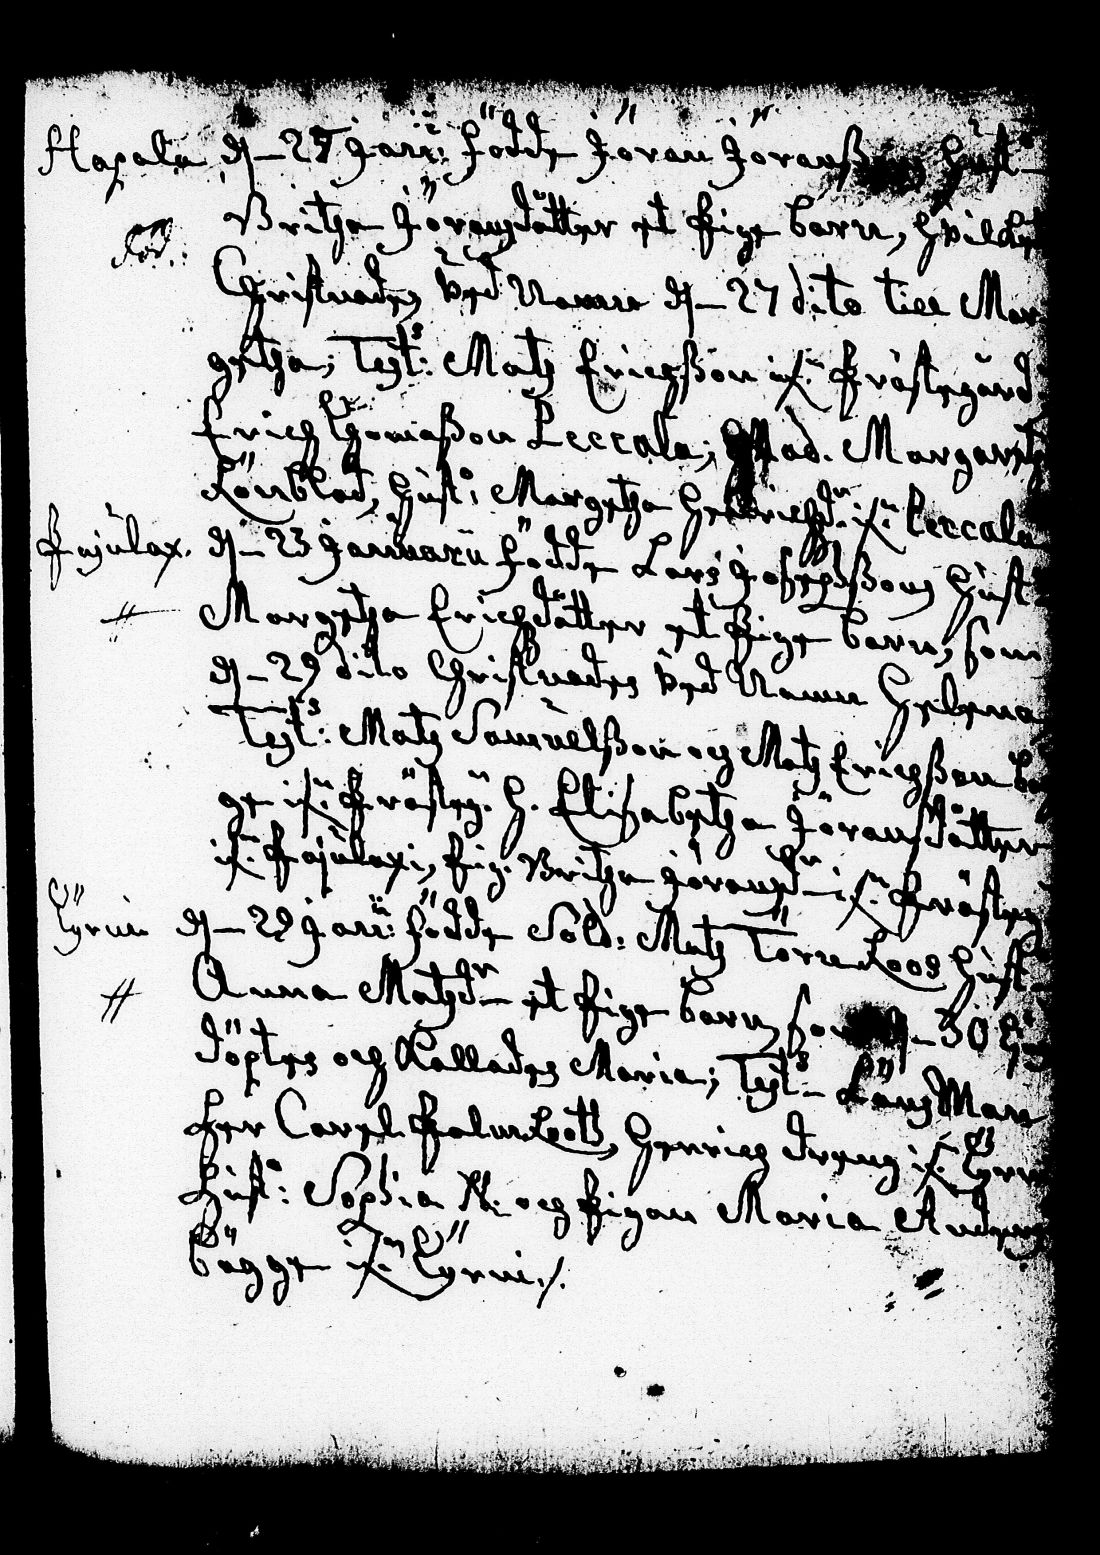 Hapala d. 25 Janu: födde Jöran Jöransß hust:
Britha Jöransdåtter et pige barn, hvilcket
Död.
Christnades ved Namn d. 27 dito till Mar
getha; Test: Mats Erichßon i Prästegård
Erich Thomaßon Leccala; Mad. Margareth
Lönblad, hust: Margetha Henrichsdr. i Leccala
Pajulax. d. 23 Januarii födde Lars Josephßons hust:
Margetha Erichsdåtter et pige barn, som
d. 29 dito Christnades ved Namn Helena
Test: Mats Samuelßon og Mats Erichßon bå
ge i Prösteg. H. Elisabetha Jöransdåtter
i Pajulaxi, pig. Britha Jöransdr i Prösteg
Tyrni d. 29 Janu: födde Sold: Mats Törn Roos hust:
Anna Matsdr et pige barn, som d. 30
döptes og Kallades Maria; Test: Läns Man
Herr Carel Palmroth, Henrich dreng i Tyrn
Hust: Sophia N. og pigan Maria Anders
bägge i Tyrni./.